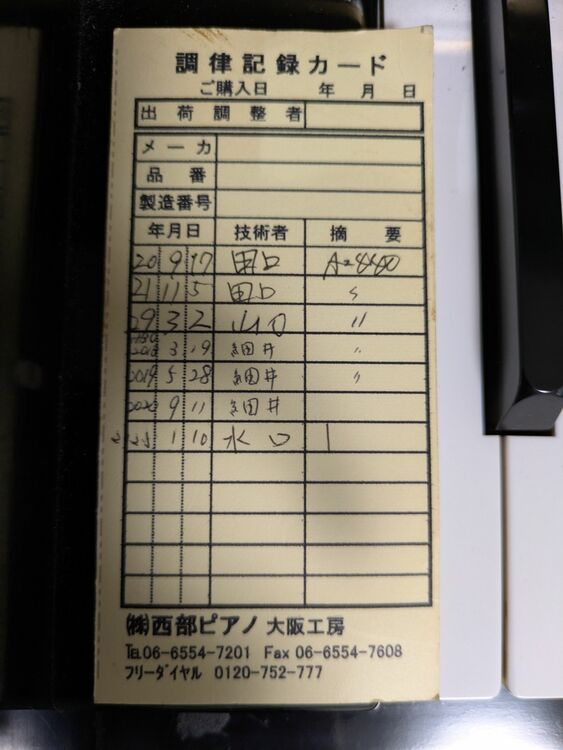 調律記録カード
ご購入日 年 月 日
出荷調整者
メーカ
品番
製造番号
年月日 技術者 摘要
20 9 17 田口 A=440
21 11 5 田口 〃
29 3 2 山口 〃
3 19 細井 〃
2019 5 28 細井 〃
2020 9 11 細井
1 10 水口
㈱西部ピアノ 大阪工房
TEL06-6554-7201 Fax 06-6554-7608
フリーダイヤル 0120-752-777